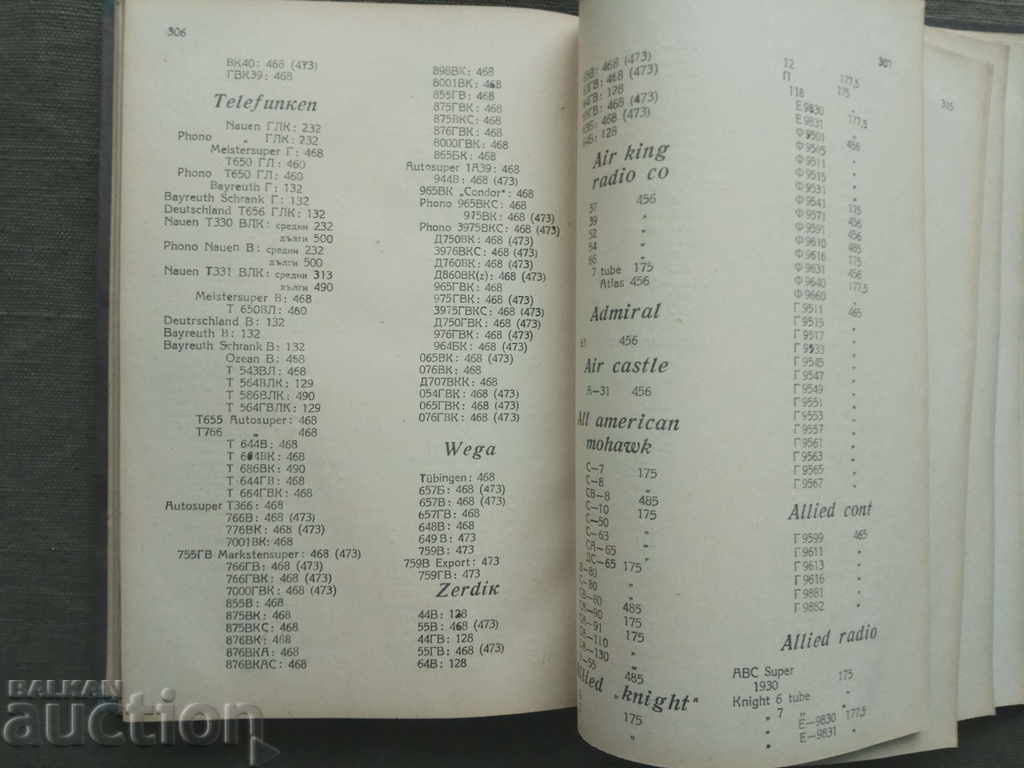 306
ВК40: 468 (473)
ГВК39: 468
Telefunken
Nauen ГЛК: 232
Phono „ ГЛК: 232
Meistersuper Г: 468
Т650 ГЛ: 460
Phono Т650 ГЛ: 460
Bayreuth Г: 132
Bayreuth Schrank Г: 132
Deutschland Т656 ГЛК: 132
Nauen Т330 ВЛК: средни 232
дълги 500
Phono Nauen В: средни 232
дълги 500
Nauen Т331 ВЛК: средни 313
дълги 490
Meistersuper В: 468
Т 650ВЛ: 460
Deutrschland В: 132
Bayreuth В: 132
Bayreuth Schrank В: 132
Ozean В: 468
Т 543ВЛ: 468
Т 564ВЛК: 129
Т 586ВЛК: 490
Т 564ГВЛК: 129
Т655 Autosuper: 468
Т766 „ 468
Т 644В: 468
Т 664ВК: 468
Т 686ВК: 490
Т 644ГВ: 468
Т 664ГВК: 468
Autosuper Т366: 468
766В: 468 (473)
776ВК: 468 (473)
7001ВК: 468
755ГВ Markstensuper: 468 (473)
766ГВ: 468 (473)
766ГВК: 468 (473)
7000ГВК: 468 (473)
855В: 468
875ВК: 468
875ВКС: 468
876ВК: 468
876ВКА: 468
876ВКАС: 468
898ВК: 468
8001ВК: 468
855ГВ: 468
875ГВК: 468
875ВКС: 468
876ГВК: 468
8000ГВК: 468
855БК: 468
Autosuper 1А39: 468
944В: 468 (473)
965ВК „Condor“: 468
Phono 965ВКС: 468
975ВК: 468 (473)
Phono 3975ВКС: 468 (473)
Д750ВК: 468 (473)
3976ВКС: 468 (473)
Д760ВК: 468 (473)
Д860ВК(z): 468 (473)
965ГВК: 468
975ГВК: 468 (473)
3975ГВКС: 468 (473)
Д750ГВК: 468 (473)
976ГВК: 468 (473)
964БК: 468 (473)
065ВК: 468 (473)
076ВК: 468
Д707ВКК: 468
054ГВК: 468 (473)
065ГВК: 468 (473)
076ГВК: 468 (473)
Wega
Tübingen: 468
657Б: 468 (473)
657В: 468 (473)
657ГВ: 468
648В: 468
649 В: 473
759В: 473
759В Export: 473
759ГВ: 473
Zerdik
44В: 128
55В: 468 (473)
44ГВ: 128
55ГВ: 468 (473)
64В: 128
307
468 (473)
468 (473)
128
468 (473)
468 (473)
128
Air king
radio co
37 456
39 „
52 „
54 „
66 „
7 tube 175
Atlas 456
Admiral
456
Air castle
А—31 456
All american
mohawk
С—7 175
С—8 „
СВ—8 485
С—10 175
С—50 „
С—63 „
СА—65 „
—65 175
В—80 „
С—80 „
СВ—80 485
СА—90 175
СА—91 „
СА—110 „
СА—130 „
—55 485
Allied „knight“
175
„
12 177,5
П 175
118 „
Е 9830 „
Е 9831 177,5
Ф 9501 „
Ф 9505 456
Ф 9511 „
Ф 9515 „
Ф 9531 „
Ф 9541 175
Ф 9571 456
Ф 9591 „
Ф 9610 485
Ф 9616 „
Ф 9631 456
Ф 9640 177,5
Ф 9660 „
Г 9511 465
Г 9515 „
Г 9517 „
Г 9533 „
Г 9545 „
Г 9547 „
Г 9549 „
Г 9551 „
Г 9553 „
Г 9557 „
Г 9561 „
Г 9563 „
Г 9565 „
Г 9567 „
Allied cont
Г 9599 465
Г 9611 „
Г 9613 „
Г 9616 „
Г 9881 „
Г 9882 „
Allied radio
ABC Super 175
1930 „
Knight 6 tube 175
„ 7 „ „
„ Е—9830 177,5
„ Е—9831 „
BALKAN
auction